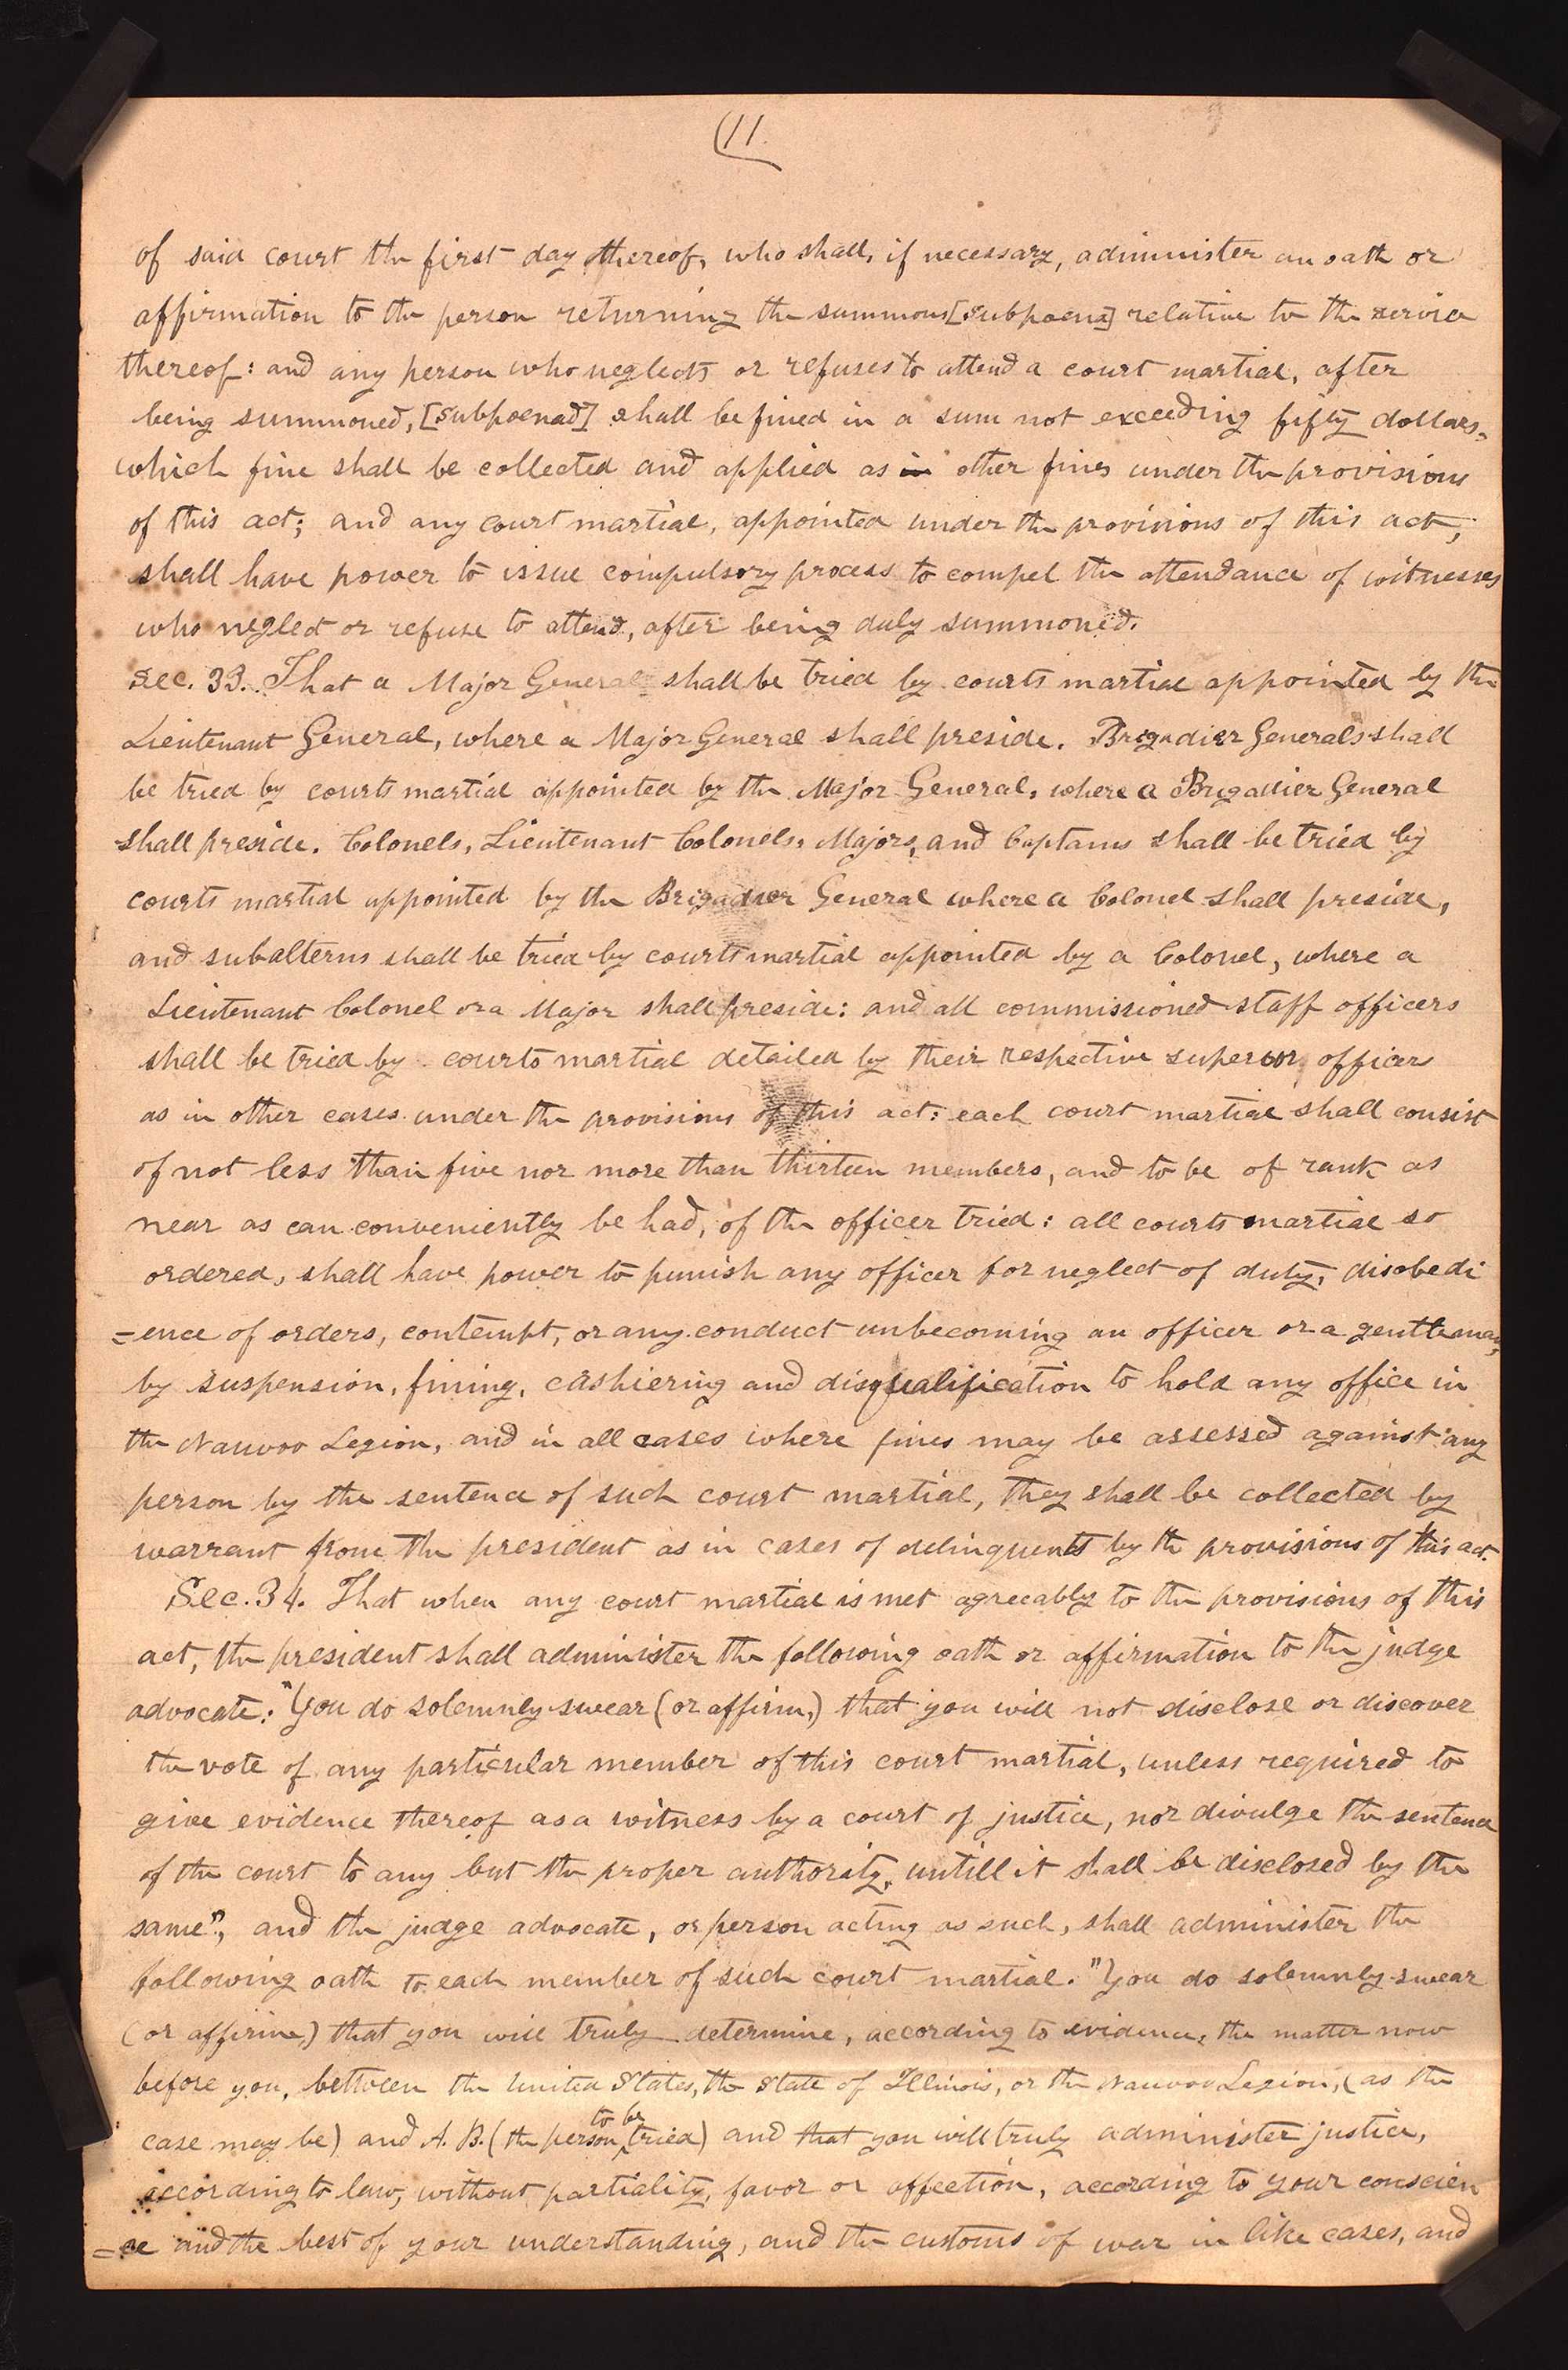 (11.
of said court the first day thereof, who shall, if necessary, administer an oath or
affirmation to the person returning the summons [subpoena] relative to the service
thereof: and any person who neglects or refuses to attend a court martial, after
being summoned, [subpoenad] shall be fined in a sum not exceeding fifty dollars,
which fine shall be collected and applied as in other fines under the provisions
of this act; and any court martial, appointed under the provisions of this act,
shall have power to issue compulsory process to compel the attendance of witnesses
who neglect or refuse to attend, after being duly summoned.
Sec. 33. That a Major General shall be tried by courts martial appointed by the
Lieutenant General, where a Major General shall preside. Brigadier Generals shall
be tried by courts martial appointed by the Major General, where a Brigadier General
shall preside. Colonels, Lieutenant Colonels, Majors, and Captains shall be tried by
courts martial appointed by the Brigadier General where a Colonel shall preside,
and subalterns shall be tried by courts martial appointed by a Colonel, where a
Lieutenant Colonel or a Major shall preside: and all commissioned staff officers
shall be tried by courts martial detailed by their respective superior officers
as in other cases under the provisions of this act: each court martial shall consist
of not less than five nor more than thirteen members, and to be of rank as
near as can conveniently be had, of the officer tried: all courts martial so
ordered, shall have power to punish any officer for neglect of duty, disobedi
=ence of orders, contempt, or any conduct unbecoming an officer or a gentleman,
by suspension, fining, cashiering and disqualification to hold any office in
the Nauvoo Legion, and in all cases where fines may be assessed against any
person by the sentence of such court martial, they shall be collected by
warrant from the president as in cases of delinquents by the provisions of this act.
Sec. 34. That when any court martial is met agreeably to the provisions of this
act, the president shall administer the following oath or affirmation to the judge
advocate: "You do solemnly swear (or affirm,) that you will not disclose or discover
the vote of any particular member of this court martial, unless required to
give evidence thereof as a witness by a court of justice, nor divulge the sentence
of the court to any but the proper authority, untill it shall be disclosed by the
same", and the judge advocate, or person acting as such, shall administer the
following oath to each member of such court martial. "You do solemnly swear
(or affirm,) that you will truly determine, according to evidence, the matter now
before you, between the United States, the State of Illinois, or the Nauvoo Legion, (as the
case may be) and A. B. (the person to be tried) and that you will truly administer justice,
according to law, without partiality, favor or affection, according to your conscien
=ce and the best of your understanding, and the customs of war in like cases, and